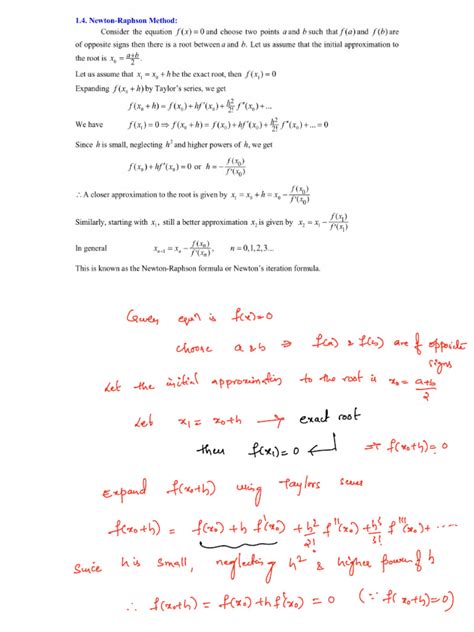 1.4. Newton-Raphson Method:
Consider the equation f(x) = 0 and choose two points a and b such that f(a) and f(b) are
of opposite signs then there is a root between a and b. Let us assume that the initial approximation to
the root is x₀ = (a+b)/2 .
Let us assume that x₁ = x₀ + h be the exact root, then f(x₁) = 0
Expanding f(x₀ + h) by Taylor's series, we get
f(x₀ + h) = f(x₀) + hf'(x₀) + h²/2! f"(x₀) + ...
We have f(x₁) = 0 ⇒ f(x₀ + h) = f(x₀) + hf'(x₀) + h²/2! f"(x₀) + ... = 0
Since h is small, neglecting h² and higher powers of h, we get
f(x₀) + hf'(x₀) = 0 or h = − f(x₀)/f'(x₀)
∴ A closer approximation to the root is given by x₁ = x₀ + h = x₀ − f(x₀)/f'(x₀)
Similarly, starting with x₁, still a better approximation x₂ is given by x₂ = x₁ − f(x₁)/f'(x₁)
In general xₙ₊₁ = xₙ − f(xₙ)/f'(xₙ), n = 0,1,2,3...
This is known as the Newton-Raphson formula or Newton's iteration formula.
Given equⁿ is f(x)=0
choose a & b ⇒ f(a) & f(b) are of opposite
signs
Let the initial approximation to the root is x₀ = (a+b)/2
Let x₁ = x₀+h → exact root
then f(x₁) = 0 ⇒ f(x₀+h) = 0
Expand f(x₀+h) using Taylors series
f(x₀+h) = f(x₀) + h f'(x₀) + h²/2! f''(x₀) + h³/3! f'''(x₀) + ....
Since h is small, neglecting h² & higher power of h
∴ f(x₀+h) = f(x₀) + h f'(x₀) = 0 (∵ f(x₀+h) = 0)